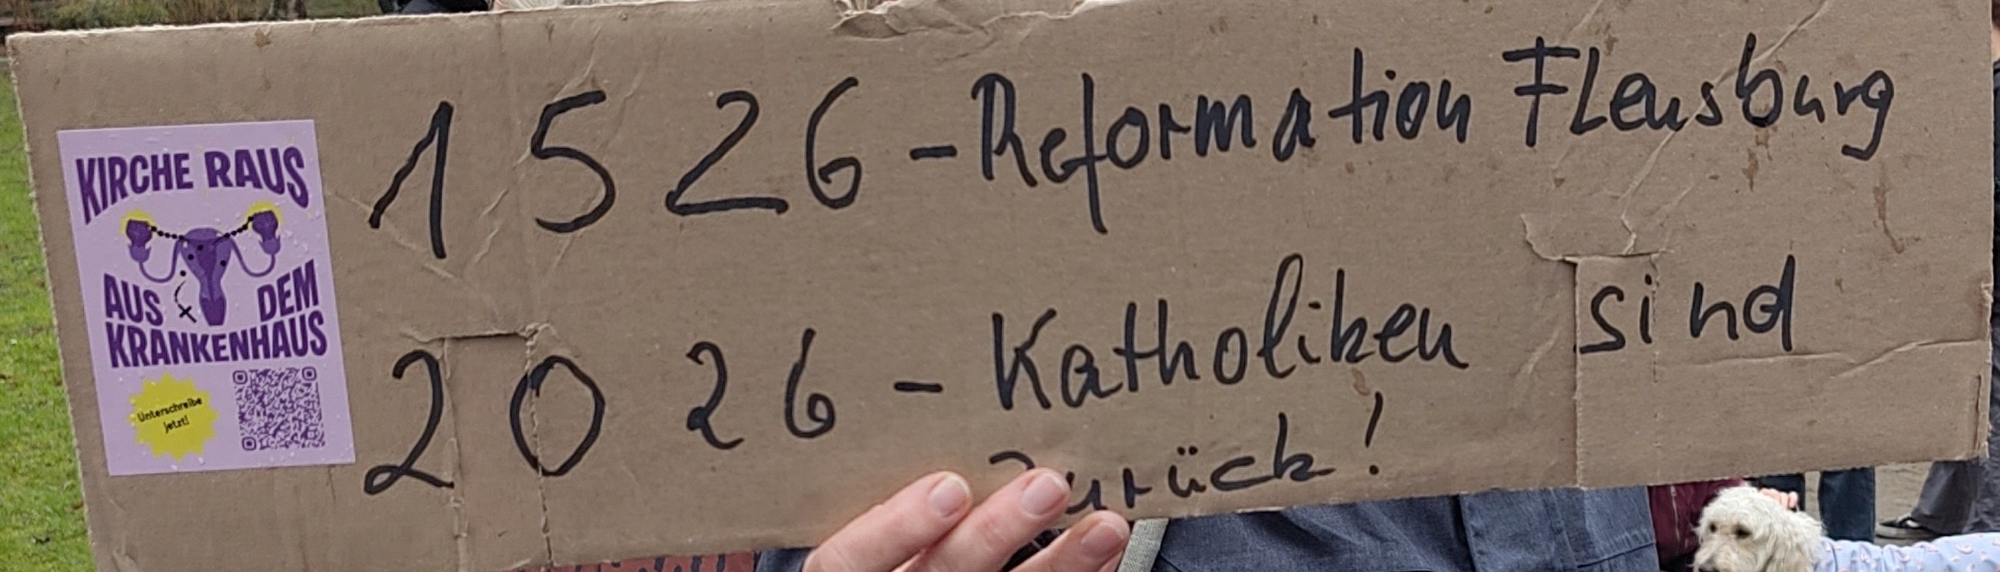 1526 - Reformation Flensburg
2026 - Katholiken sind
zurück!
KIRCHE RAUS
AUS DEM
KRANKENHAUS
Unterschreibe
jetzt!